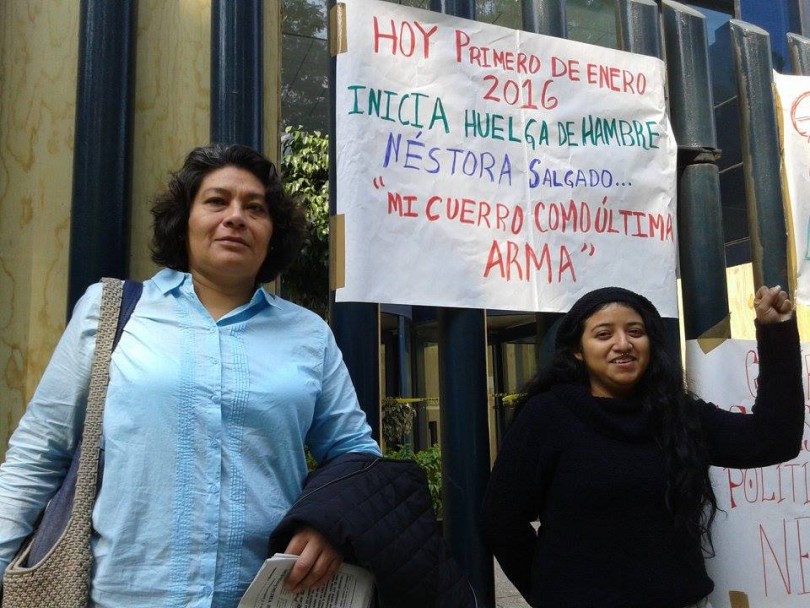 HOY PRIMERO DE ENERO
2016
INICIA HUELGA DE HAMBRE
NÉSTORA SALGADO...
"MI CUERRO COMO ÚLTIMA
ARMA"
POLÍTI
NE